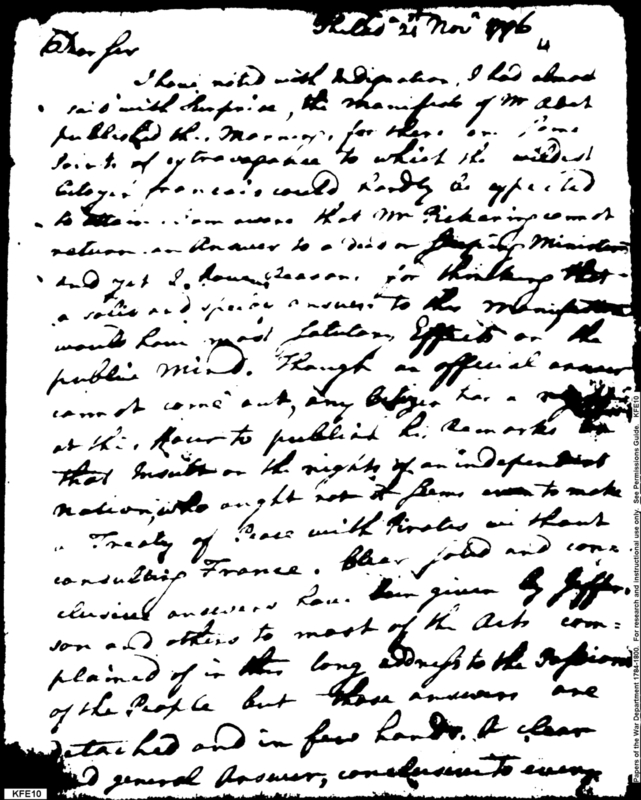 Philad.ª 21st Novr 1796
Dear Sir
I have noted with Indignation, I had almost
said with Surprise, the Manifesto of Mr Adet
published this Morning, for there are some
points of extravagance to which the wildest
Citoyen francais could hardly be expected
to attain. I am aware that Mr Pickering cannot
return an Answer to a Minister
and yet I have Reasons for thinking that
a solid and answer to this Manifesto
would have most salutary Effects on the
public mind. Though an official answer
cannot come out, any Citizen has a
at this Hour to publish his Remarks on
that Insult on the rights of an independent
Nation, who ought not it seems even to make
a Treaty of Peace with Pirates without
consulting France. Clear solid and con=
clusive answers have been given by Jeffer=
son and others to most of the Acts com=
plained of in this long address to the Passions
of the People but those answers are
detached and in few hands. A clear
and general Answer, conclusive to every
KFE10
Papers of the War Department 1784-1800. For research and instructional use only. See Permissions Guide. KFE10